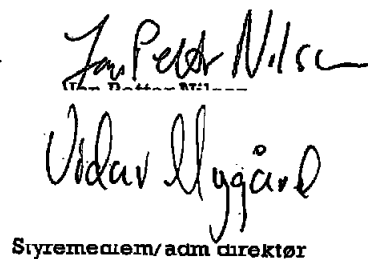 Jan Petter Nilsen
Jan Petter Nilsen
Vidar Nygård
Styremedlem/adm direktør